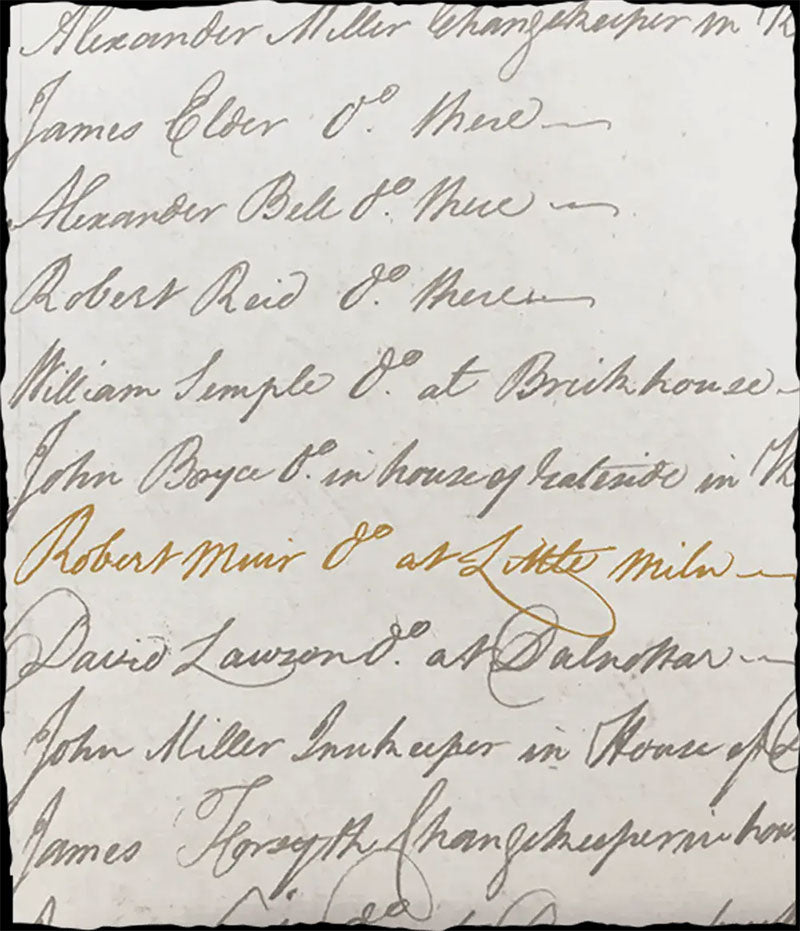 Alexander Miller Changekeeper in K
James Elder Do. there
Alexander Bell Do. there
Robert Reid Do. there
William Semple Do. at Brickhouse
John Bryce Do. in house of Gateside in K
Robert Muir Do at Little Miln
David Lawson Do. at Dalnottar
John Miller Innkeeper in House of D
James Forsyth Changekeeper in hou